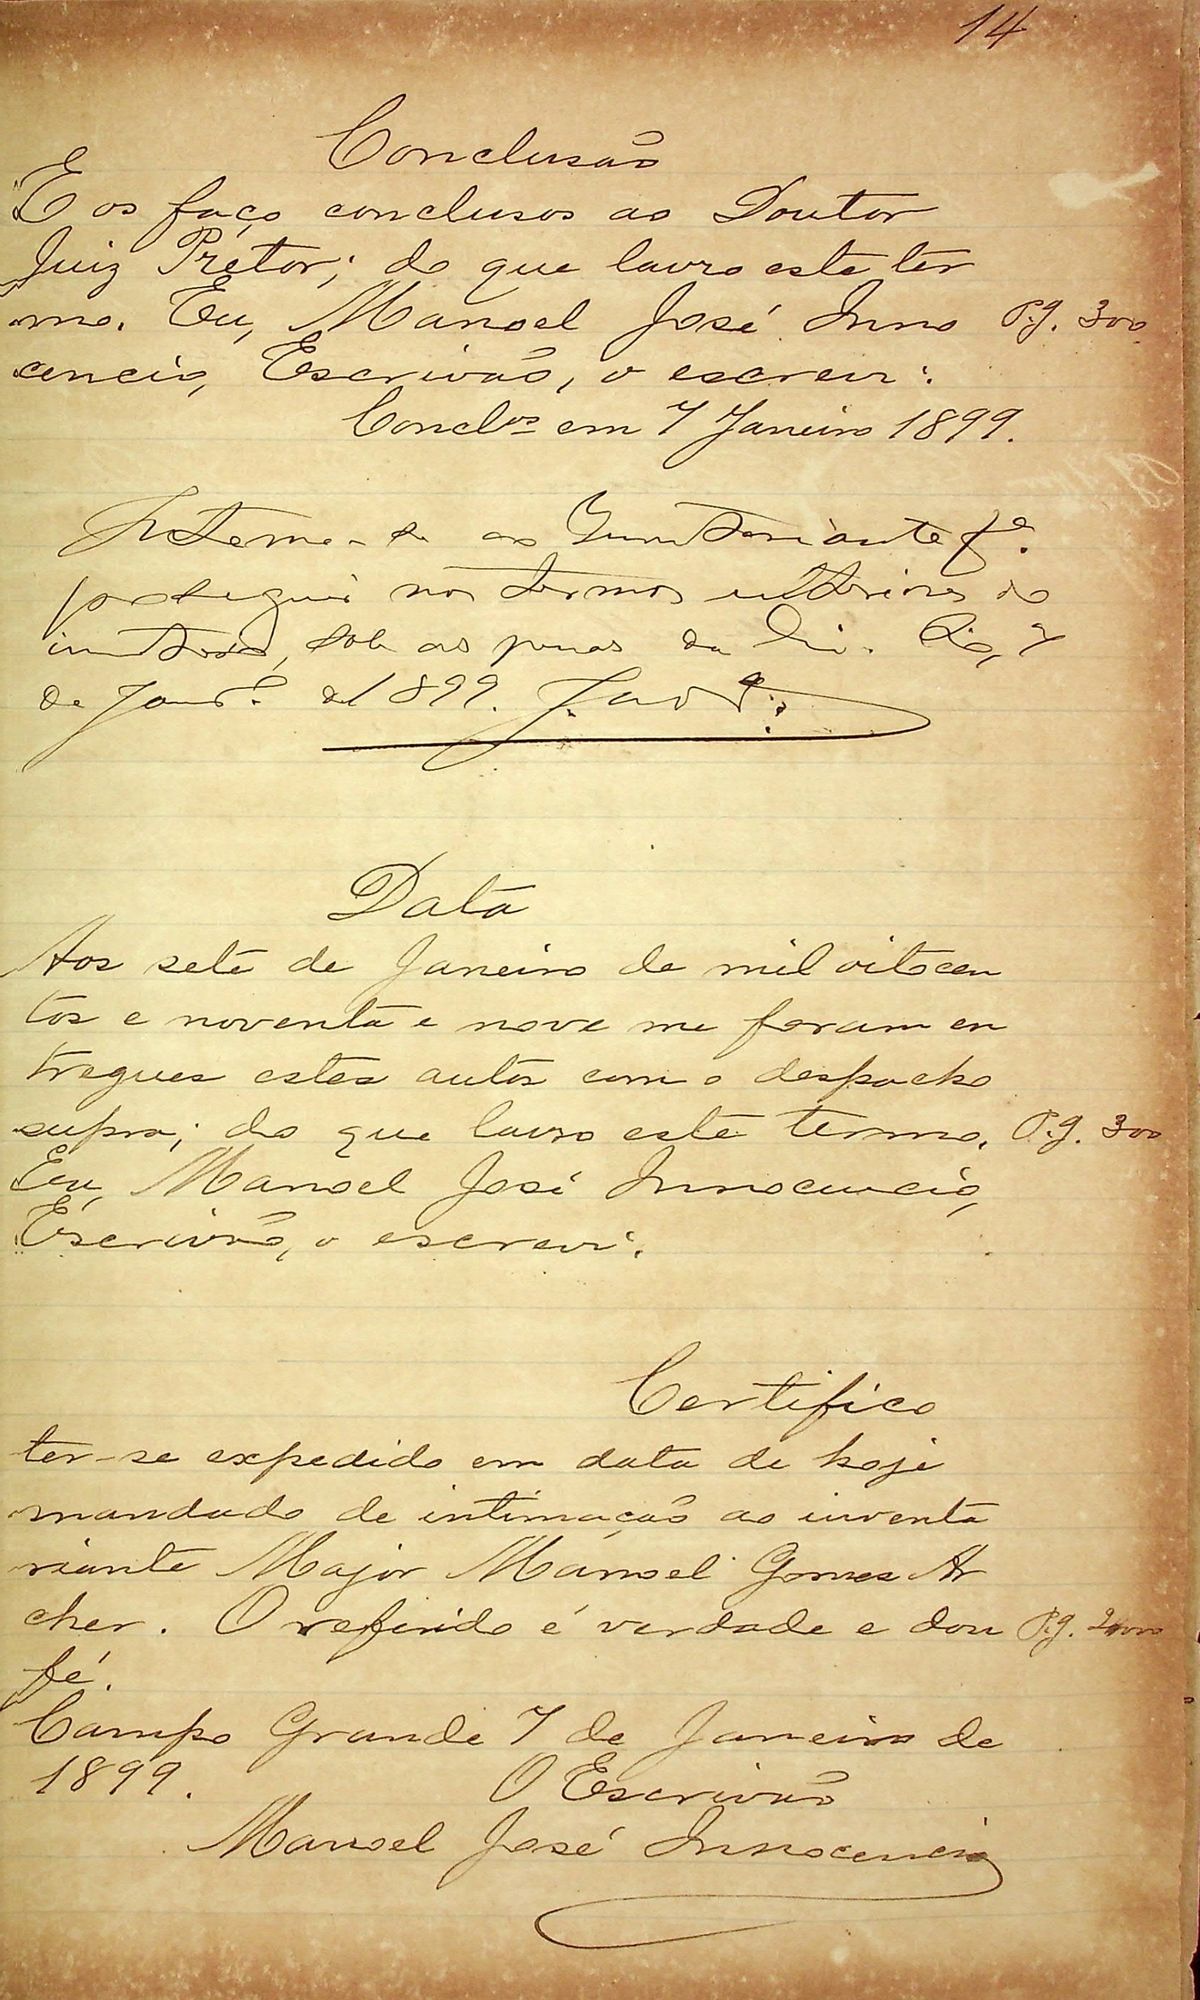 14
Conclusão
E os faço conclusos ao Doutor
Juiz Pretor; do que lavro este ter
mo. Eu, Manoel José Inno
P.g. 300
cencio, Escrivão, o escrevi.
Concl.os em 7 Janeiro 1899.
Intime-se ao Inventariante p.a
proseguir nos termos ulteriores do
inventario, sob as penas da lei. Rio, 7
de Jan.ro de 1899.
Data
Aos sete de Janeiro de mil oitocen
tos e noventa e nove me foram en
tregues estes autos com o despacho
supra; do que lavro este termo.
P.g. 300
Eu, Manoel José Innocencio,
Escrivão, o escrevi.
Certifico
ter-se expedido em data de hoje
mandado de intimação ao inventa
riante Major Manoel Gomes Ar
cher. O referido é verdade e dou
P.g.
fé.
Campo Grande 7 de Janeiro de
1899.
O Escrivão
Manoel José Innocencio